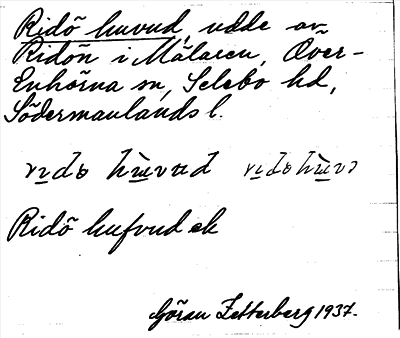 Ridö huvud, udde av
Ridön i Mälaren, Över-
Enhörna sn, Selebo hd,
Södermanlands l.
Ridö hufvud ek
Göran Zetterberg 1937.